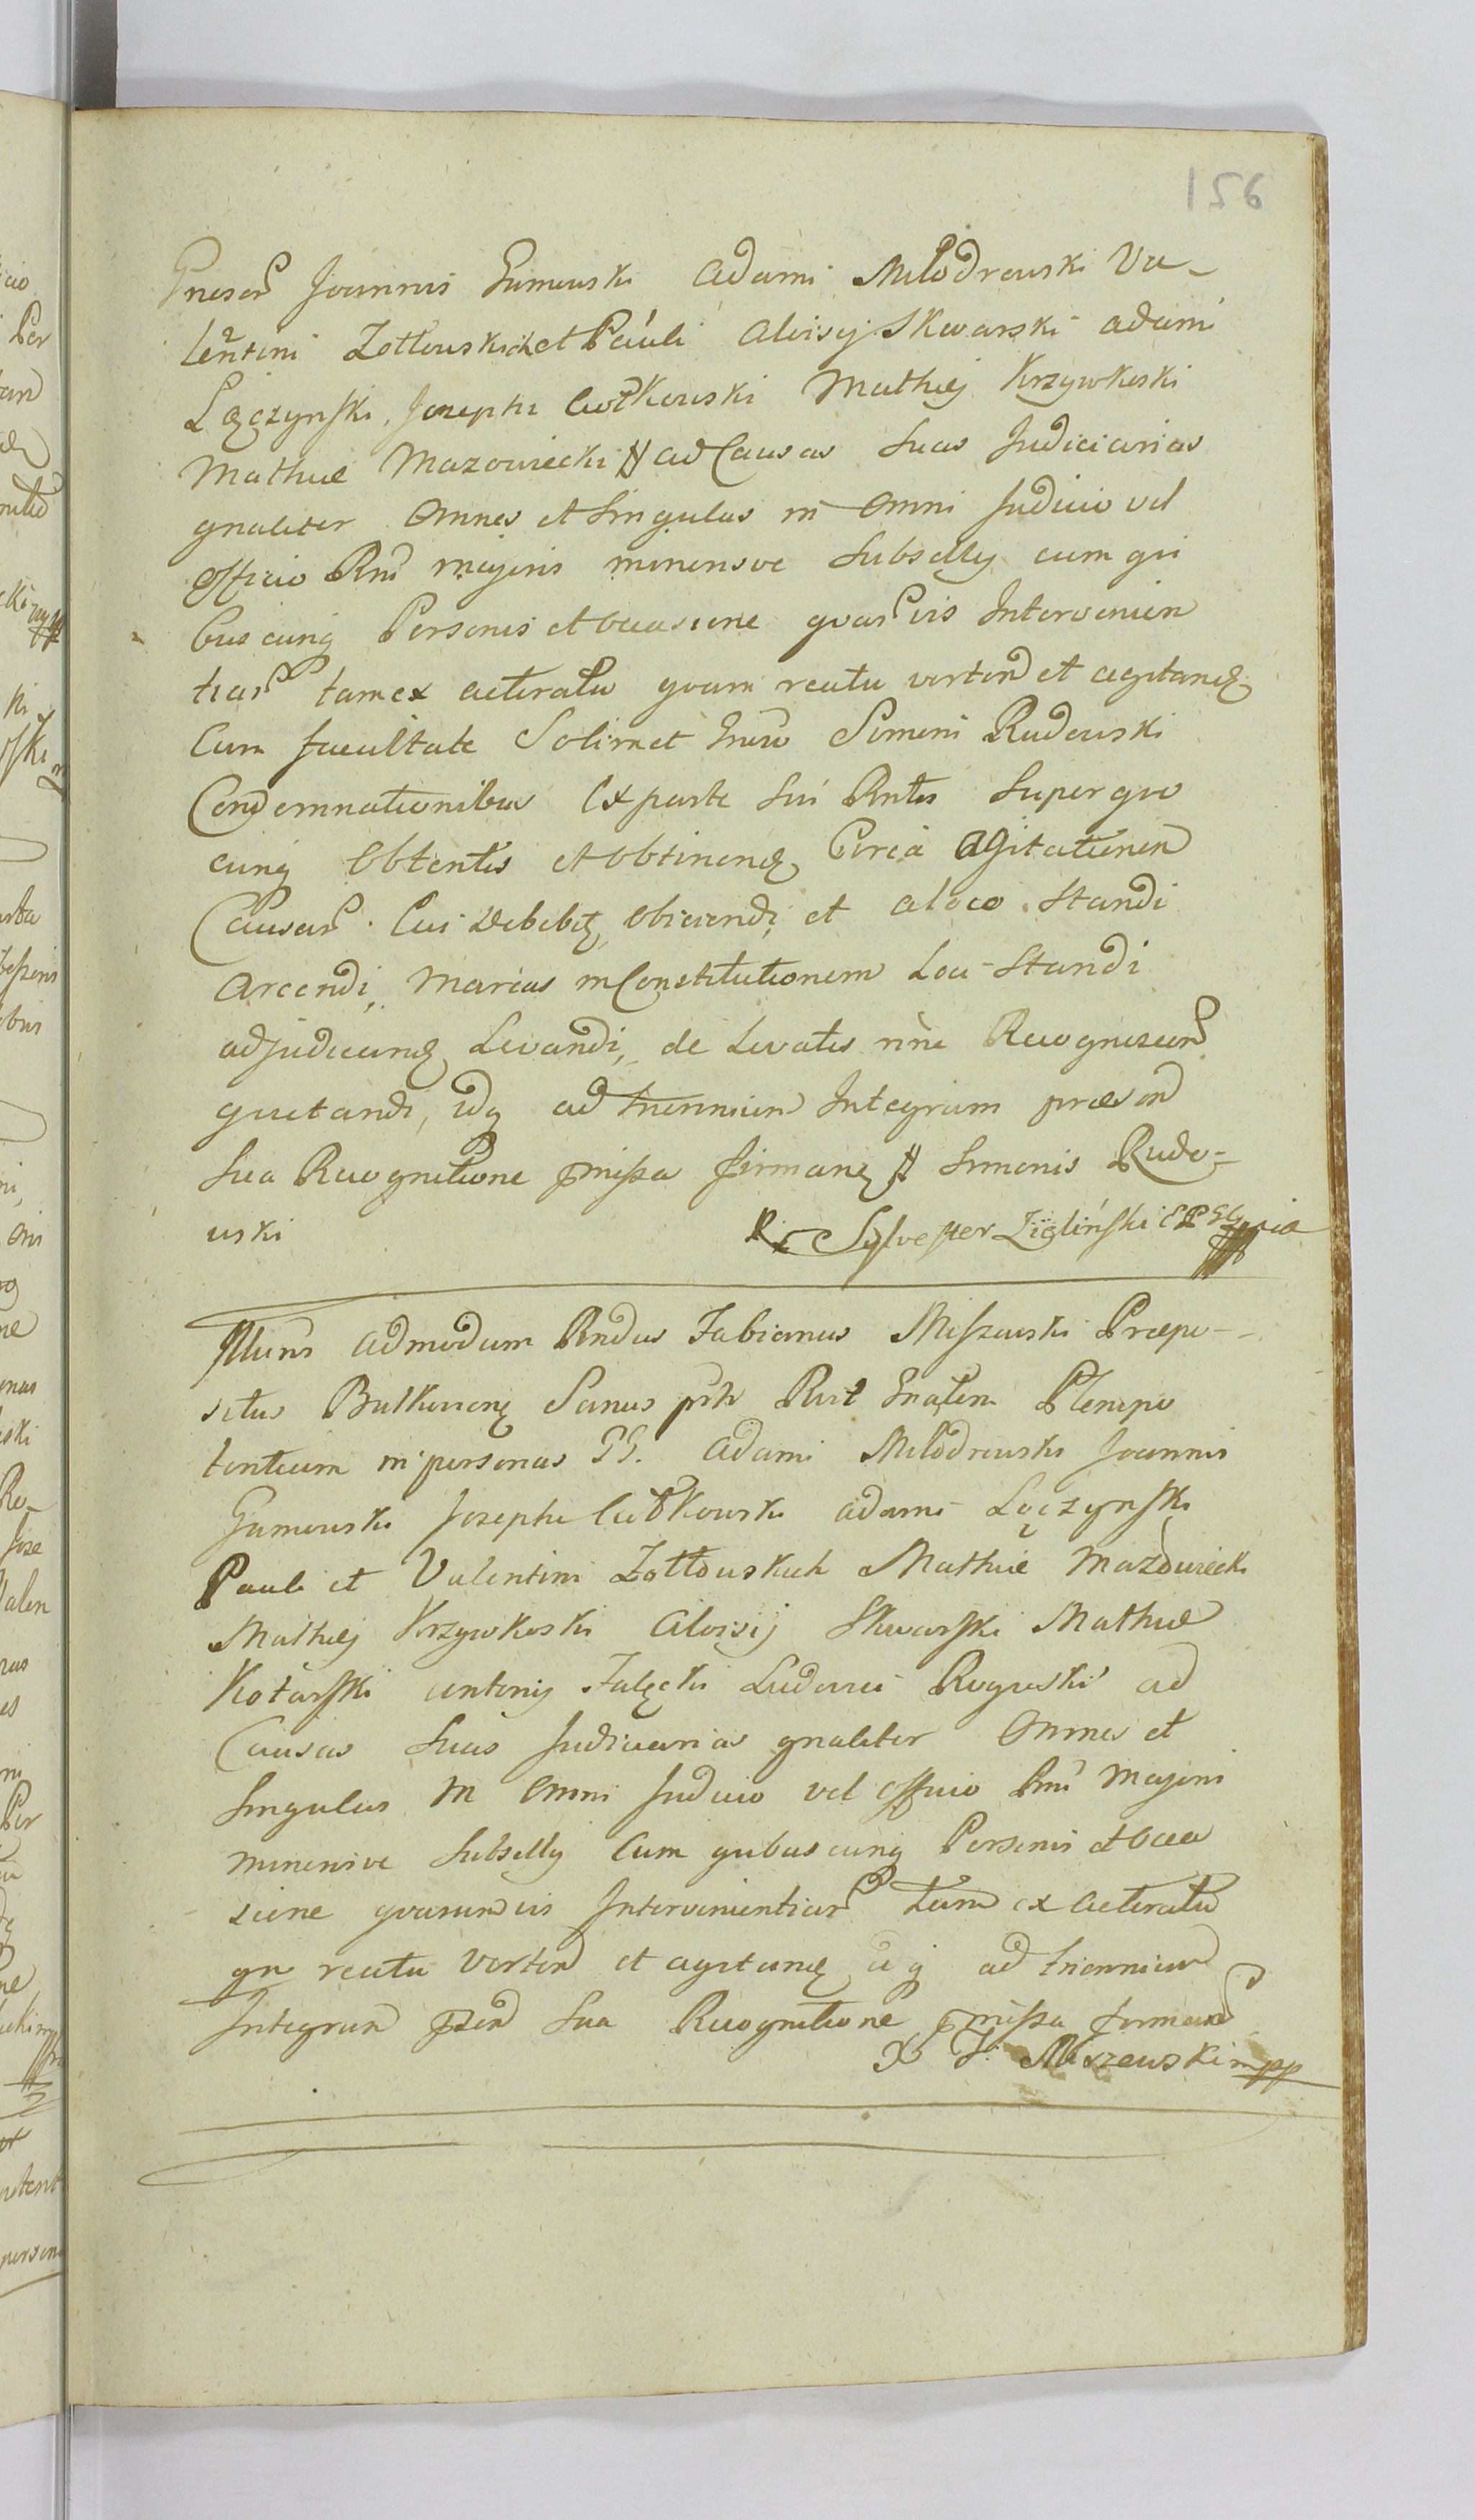 156
Gnesor Joannis Gumowski Adami Młodzowski Va-
lentini Zołtowskich et Pauli Aloisij Skwarski Adami
Lęczynski, Josephi Cwłkowski Mathiej Krzywkoski
Mathiæ Mazowiecki ad Causas suas Judiciarias
gnaliter Omnes et Singulas in Omni Judicio vel
Officio Rni majoris minorisve Subsellij cum qui
buscunq Personis et occasione quarvis Intervenien
tiar tam ex acteratu quam reatu verten et agitand
Cum facultate Solimet Gnero Simoni Rudowski
Condemnationibus Ex parte sui Rntis Super quo
cunq Obtentis et obtinend, Circa agitationem
Causar. Cui debebit, Obiciendi, et a loco Standi
Arcendi, Marcas in Constitutionem Loci Standi
adjudicand Levandi, de Levatis nne Recognoscen
quietandi, idq ad triennium Integrum præsen
sua Recognitione pmissa firmand Simonis Rudo-
wski
Sylvester Zieliński
Illuns admodum Rndus Fabianus Miszewski Præpo-
situs Bulkoviens Sanus prh Rcit Gnalem Plenipo
tentiam in personas GG. Adami Młodzowski Joannis
Gumowski Josephi Cwłkowski Adami Lęczynski
Pauli et Valentini Zołtowskich Mathiæ Mazowiecki
Mathiej Krzywkoski Aloisij Skwarski Mathiæ
Kotarski Antonij Falęcki Ludovici Rogowski ad
Causas Suas Judiciarias gnaliter Omnes et
Singulas in Omni Judicio vel Officio Rni Majoris
minorisve Subsellij Cum quibuscunq Personis et occa
sione quarumvis Intervenientiar tam ex acteratu
qm reatu verten et agitand idq ad triennium
Integrum pzen Sua Recognitione pmissa firmand
X F. Miszewski mpp